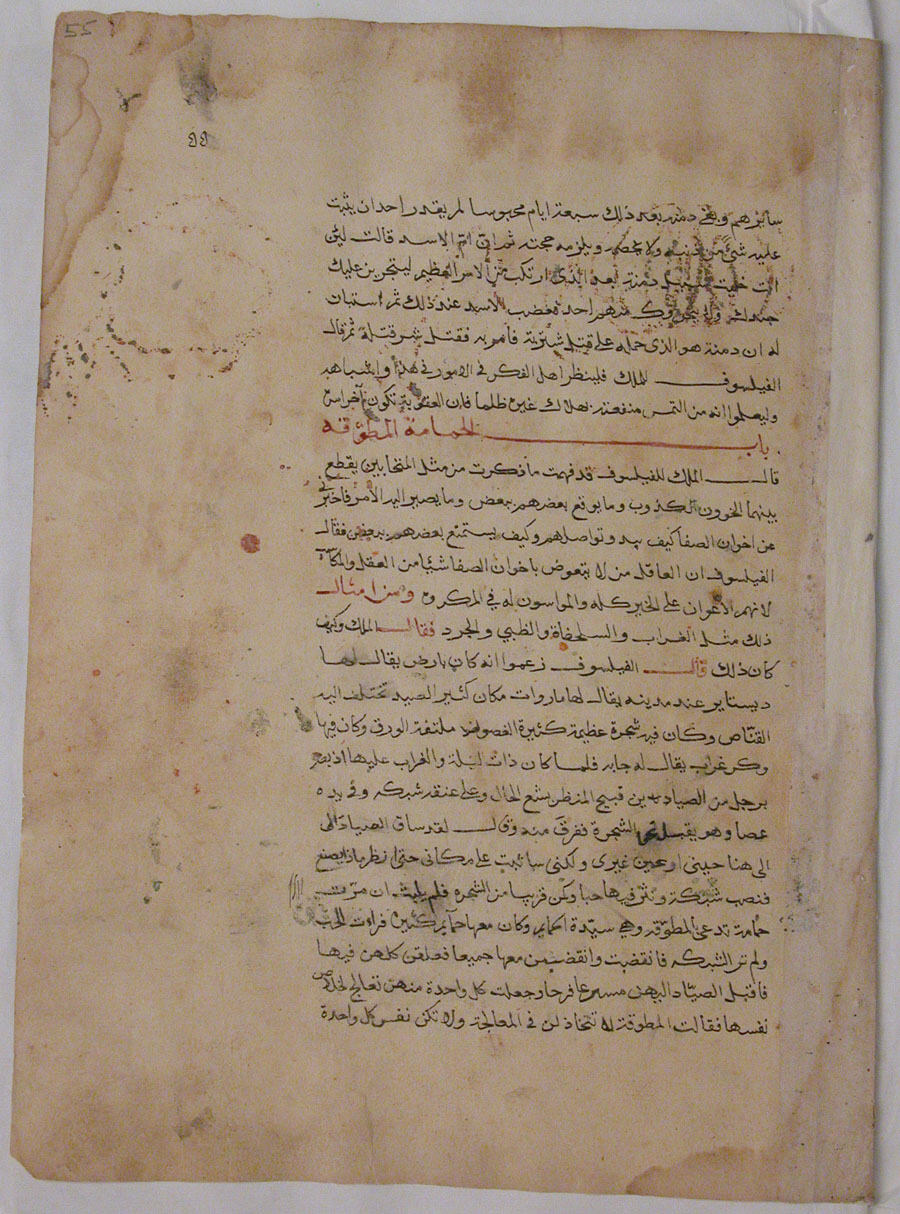 55
٩٩
سائرهم وبقي دمنه بعد ذلك سبعة ايام محبوسا لم يقدر احد ان يثبت
عليه شئ من ذنبه ويلزمه حجته ثم ان ام الاسد قالت لئن
انت خليت دمنة بعد الذى ارتكب من الامر العظيم ليتجرين عليك
جندك منهم احد فغضب الاسد عند ذلك ثم استبان
له ان دمنة هو الذى حمله على قتل شتربة فأمر به فقتل شر قتلة ثم قال
الفيلسوف للملك فلينظر اهل الفكر في الامور في هذا واشباهه
وليعلموا انه من التمس منفعته بهلاك غيره ظلما فان
باب الحمامة المطوقه
قال الملك للفيلسوف قد فهمت ما ذكرت من مثل المتحابين يقطع
بينهما الخوون الكذوب وما يوقع بعضهم ببعض وما يصير اليه الامر فاخبرني
عن اخوان الصفا كيف يبدو تواصلهم وكيف يستمتع بعضهم ببعض فقال
الفيلسوف ان العاقل من لا يتعوض باخوان الصفا شيئا من العقل
لانهم الاعوان على الخير كله والمواسون له في المكروه ومن امثال
ذلك مثل الغراب والسلحفاة والظبي والجرد فقال الملك وكيف
كان ذلك قال الفيلسوف زعموا انه كان بارض يقال لها
دبستابو عند مدينه يقال لها ماروات مكان كثير الصيد تختلف اليه
القنّاص وكان فيه شجرة عظيمة كثيرة الغصون ملتفة الورق وكان فيها
وكر غراب يقال له جابر فلما كان ذات ليلة والغراب عليها اذ بصر
برجل من الصيادين قبيح المنظر بشع الحال وعلى عنقه شبكه وفي يده
عصا وهو يقبل نحو الشجرة ففرق منه وقال لقد ساق الصياد الى
الى هنا حيني او حين غيرى ولكنى سائبت على مكانى حتى انظر ماذا يصنع
فنصب شبكته ونثر فيها حبا وكمن قريبا من الشجره فلم يلبث ان مرّت
حمامة تدعى المطوّقة وهي سيّدة الحمام وكان معها حمام كثيرة فرات الحب
ولم تر الشبكه فانقضت وانقضضن معها جميعا فعلقن كلهن فيها
فاقبل الصيّاد اليهن مسرعا فرحا وجعلت كل واحدة منهن تعالج لخلاص
نفسها فقالت المطوقة لا تتخاذلن في المعالجة ولا تكن نفس كل واحدة